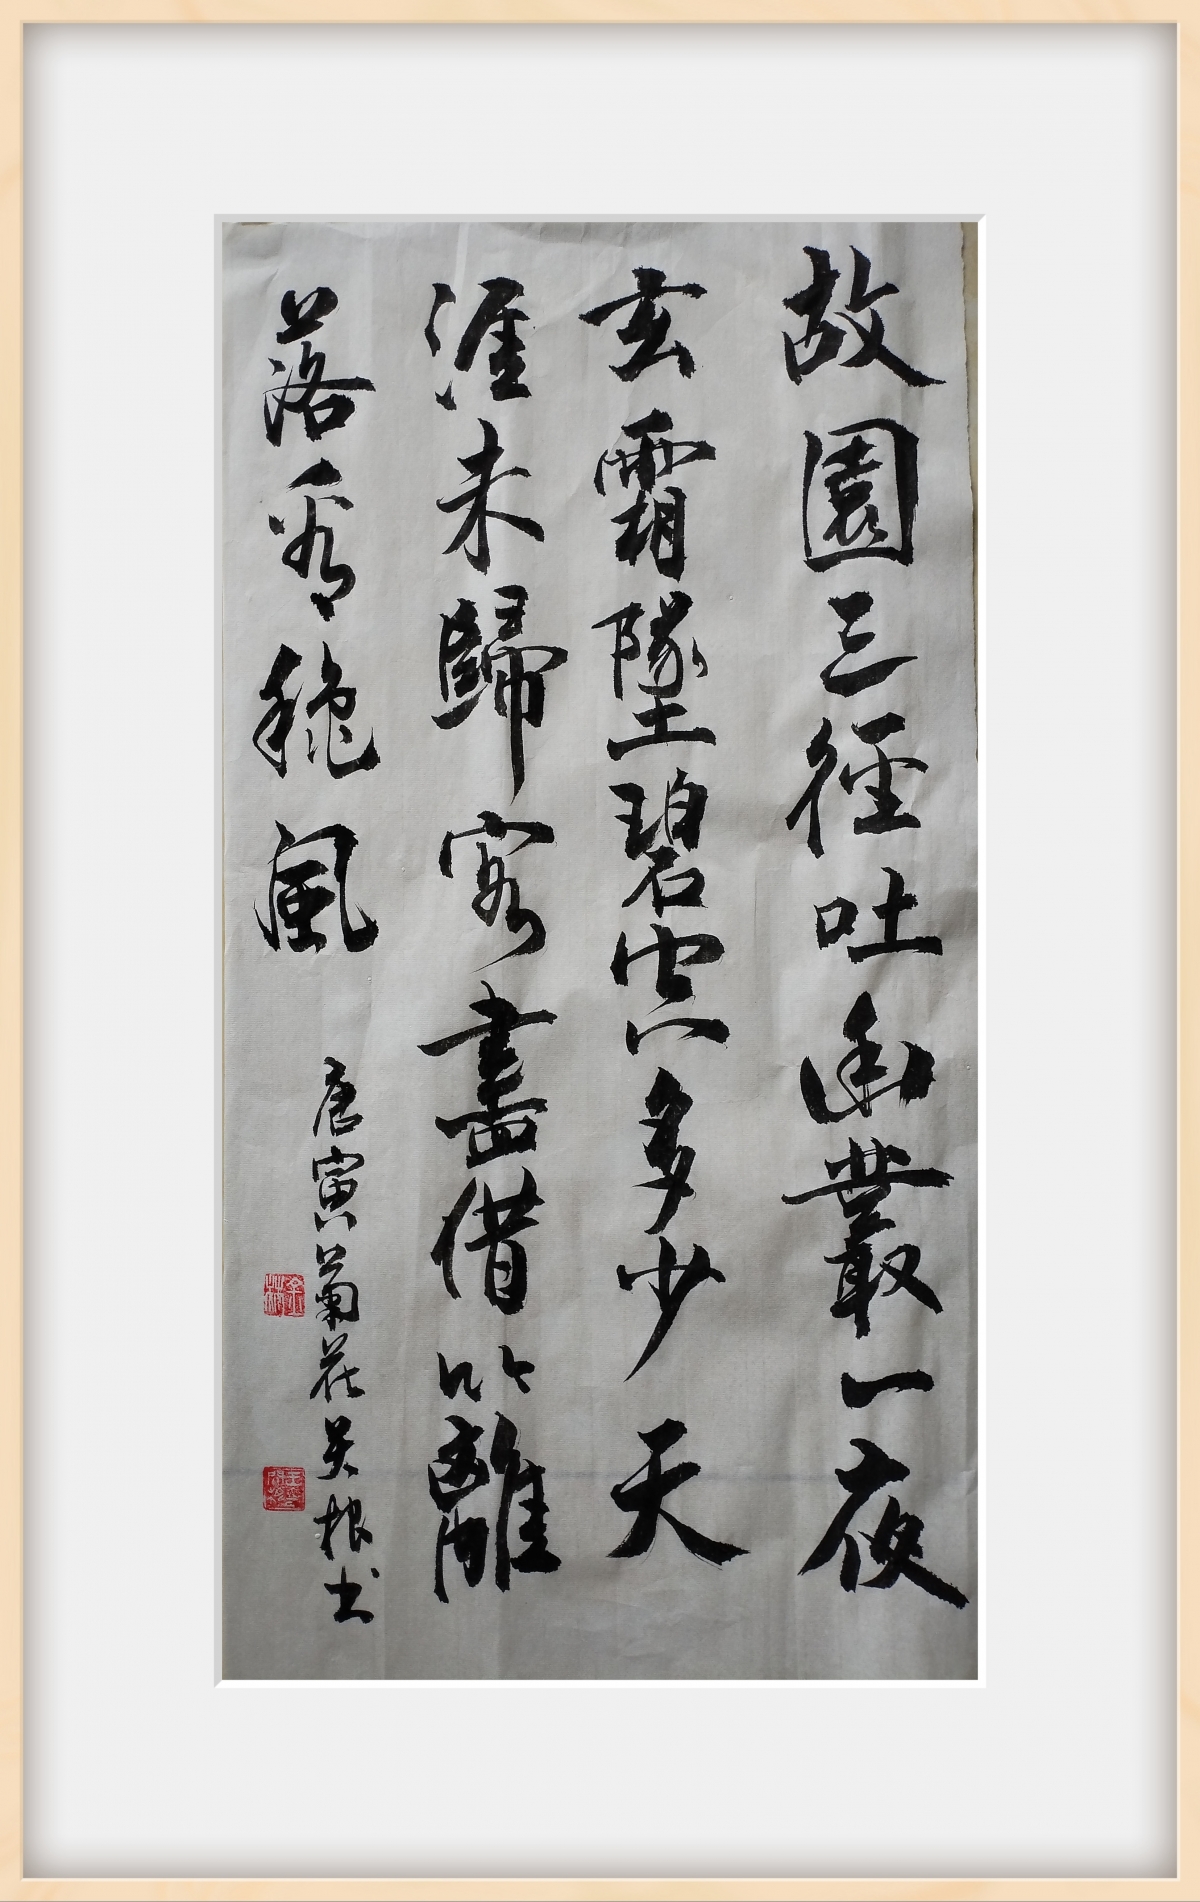 故園三徑吐幽叢一夜
玄霜墜碧空多少天
涯未歸客盡借籬
落看穐風
唐寅菊花吴根书